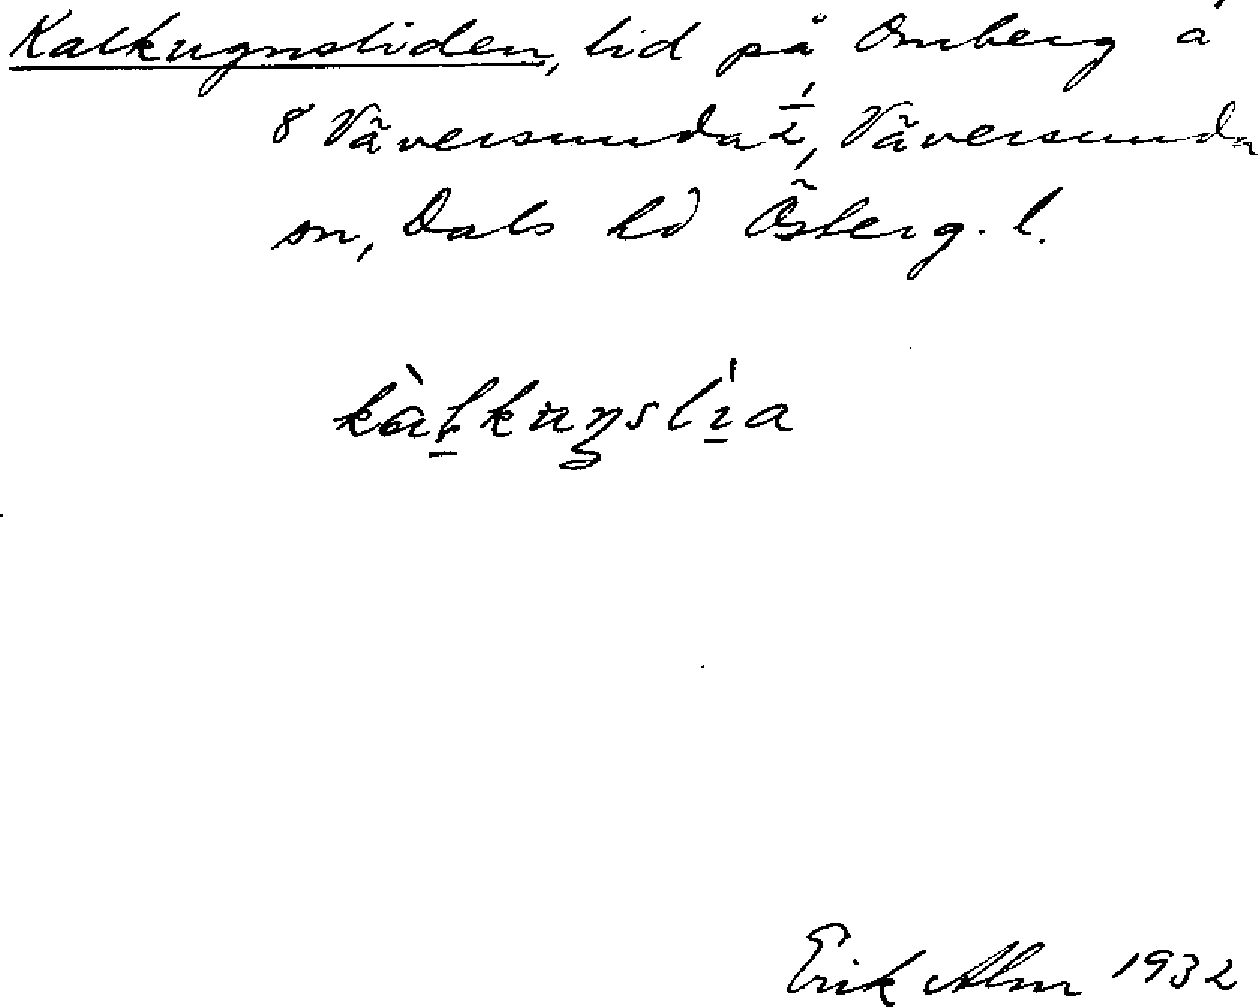 Kalkugnsliden, lid på Omberg å
8 Väversunda 1/2, Väversunda
sn, Dals hd Österg. l.
kàl̠kuŋsli̠a
Erik Alm 1932